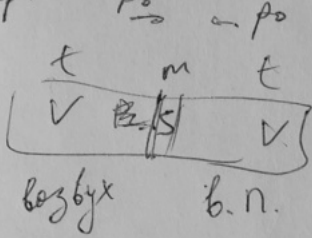 p₀ p₀
t m t
V S V
возвух в.п.